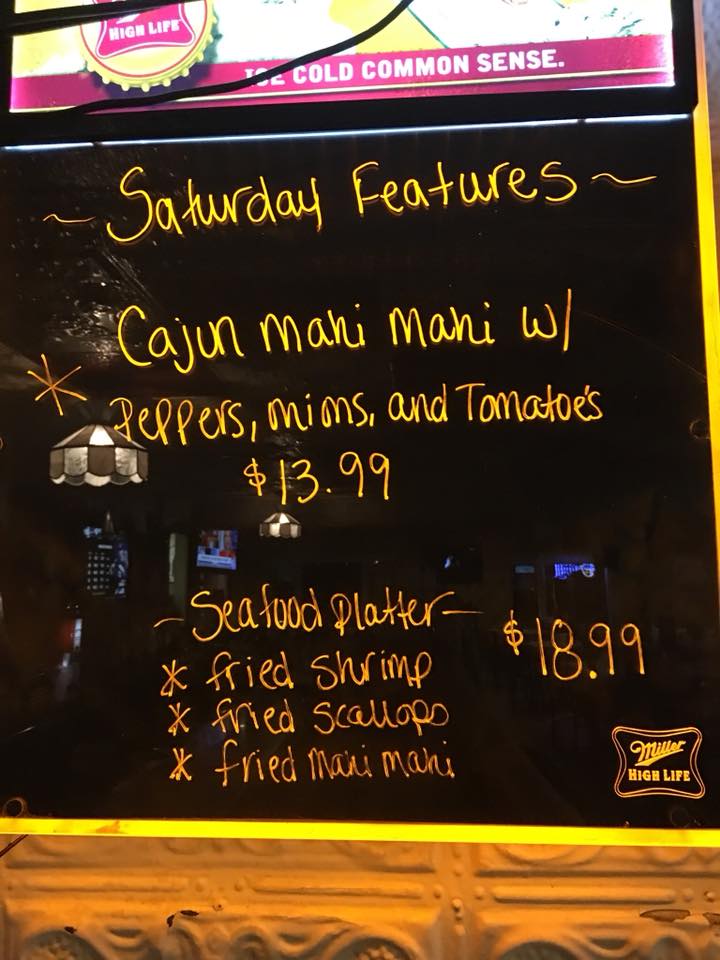 HIGH LIFE
ICE COLD COMMON SENSE.
~ Saturday Features ~
* Cajun Mahi Mahi w/
Peppers, mions, and Tomatoe's
$13.99
- Seafood Platter -
$18.99
* fried Shrimp
* fried Scallops
* fried Mahi Mahi
Miller
HIGH LIFE